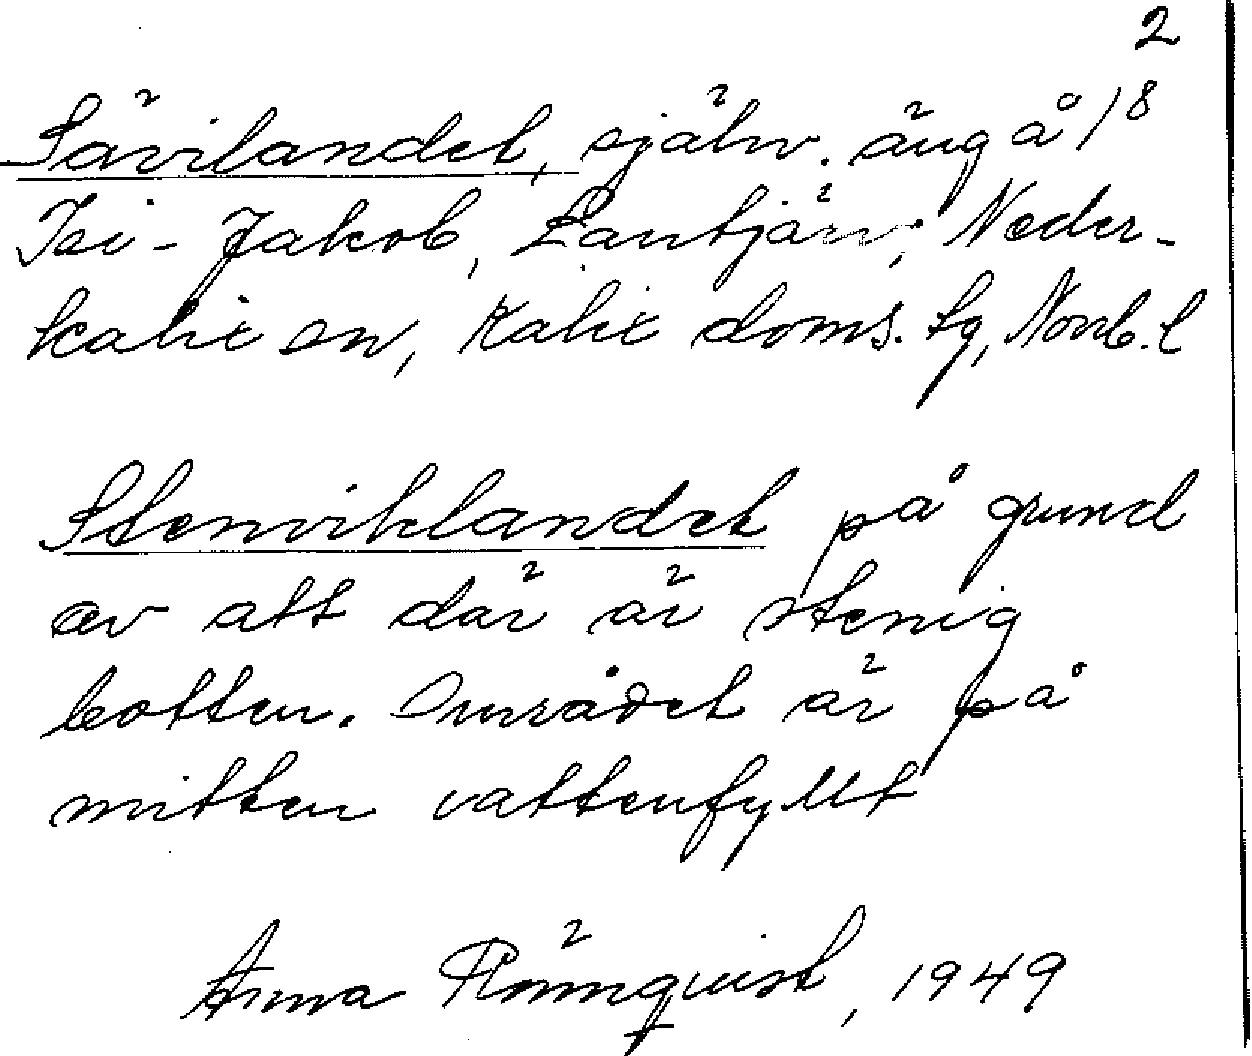 2
Sävilandet, själw. äng å 1/8
Isi-Jakob, Lantjärv, Neder-
kalix sn, Kalix doms. tg, Norrb. l
Stenviklandet på grund
av att där är stenig
botten. Området är på
mitten vattenfyllt
Anna Rönnquist, 1949